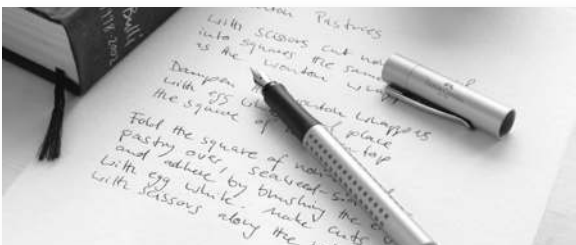 Bulli
1998-2002
Pastries
with scissors cut
into squares the same
as the wonton
Dampen wonton wrappers
with egg place
the square of top
Fold the square of
pastry over seaweed
and adhere by brushing the
with egg white. Make cuts
with scissors along the